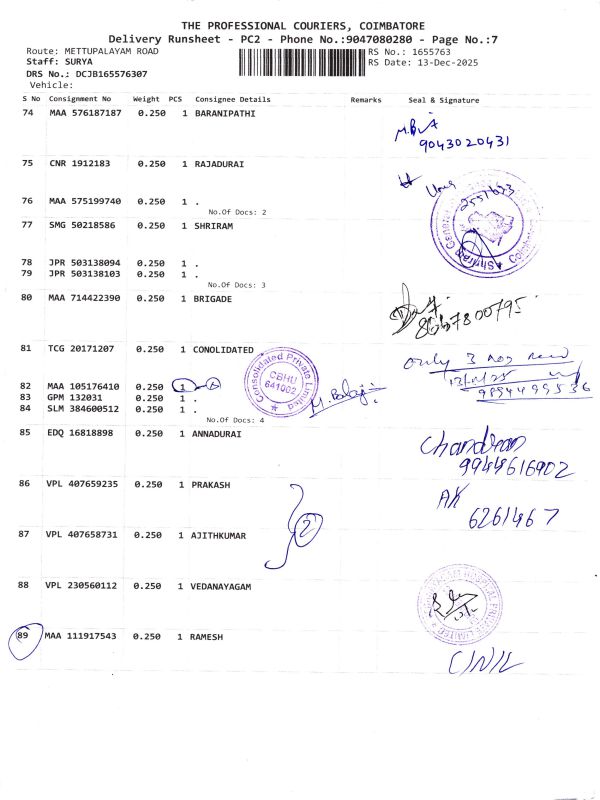 THE PROFESSIONAL COURIERS, COIMBATORE
Delivery Runsheet - PC2 - Phone No.:9047080280 - Page No.:7
Route: METTUPALAYAM ROAD RS No.: 1655763
Staff: SURYA RS Date: 13-Dec-2025
DRS No.: DCJB165576307
Vehicle:
S No Consignment No Weight PCS Consignee Details Remarks Seal & Signature
74 MAA 576187187 0.250 1 BARANIPATHI
9043020431
75 CNR 1912183 0.250 1 RAJADURAI
76 MAA 575199740 0.250 1 .
No.Of Docs: 2
77 SMG 50218586 0.250 1 SHRIRAM
78 JPR 503138094 0.250 1 .
79 JPR 503138103 0.250 1 .
No.Of Docs: 3
80 MAA 714422390 0.250 1 BRIGADE
8667800795
81 TCG 20171207 0.250 1 CONOLIDATED
Consolidated Private Limited
CBHU
641002
only 3 nos
82 MAA 105176410 0.250 1
83 GPM 132031 0.250 1 .
84 SLM 384600512 0.250 1 .
M. Balaji
9894499536
No.Of Docs: 4
85 EDQ 16818898 0.250 1 ANNADURAI
Chandran
9944616902
86 VPL 407659235 0.250 1 PRAKASH
AK
6261467
2
87 VPL 407658731 0.250 1 AJITHKUMAR
88 VPL 230560112 0.250 1 VEDANAYAGAM
89 MAA 111917543 0.250 1 RAMESH